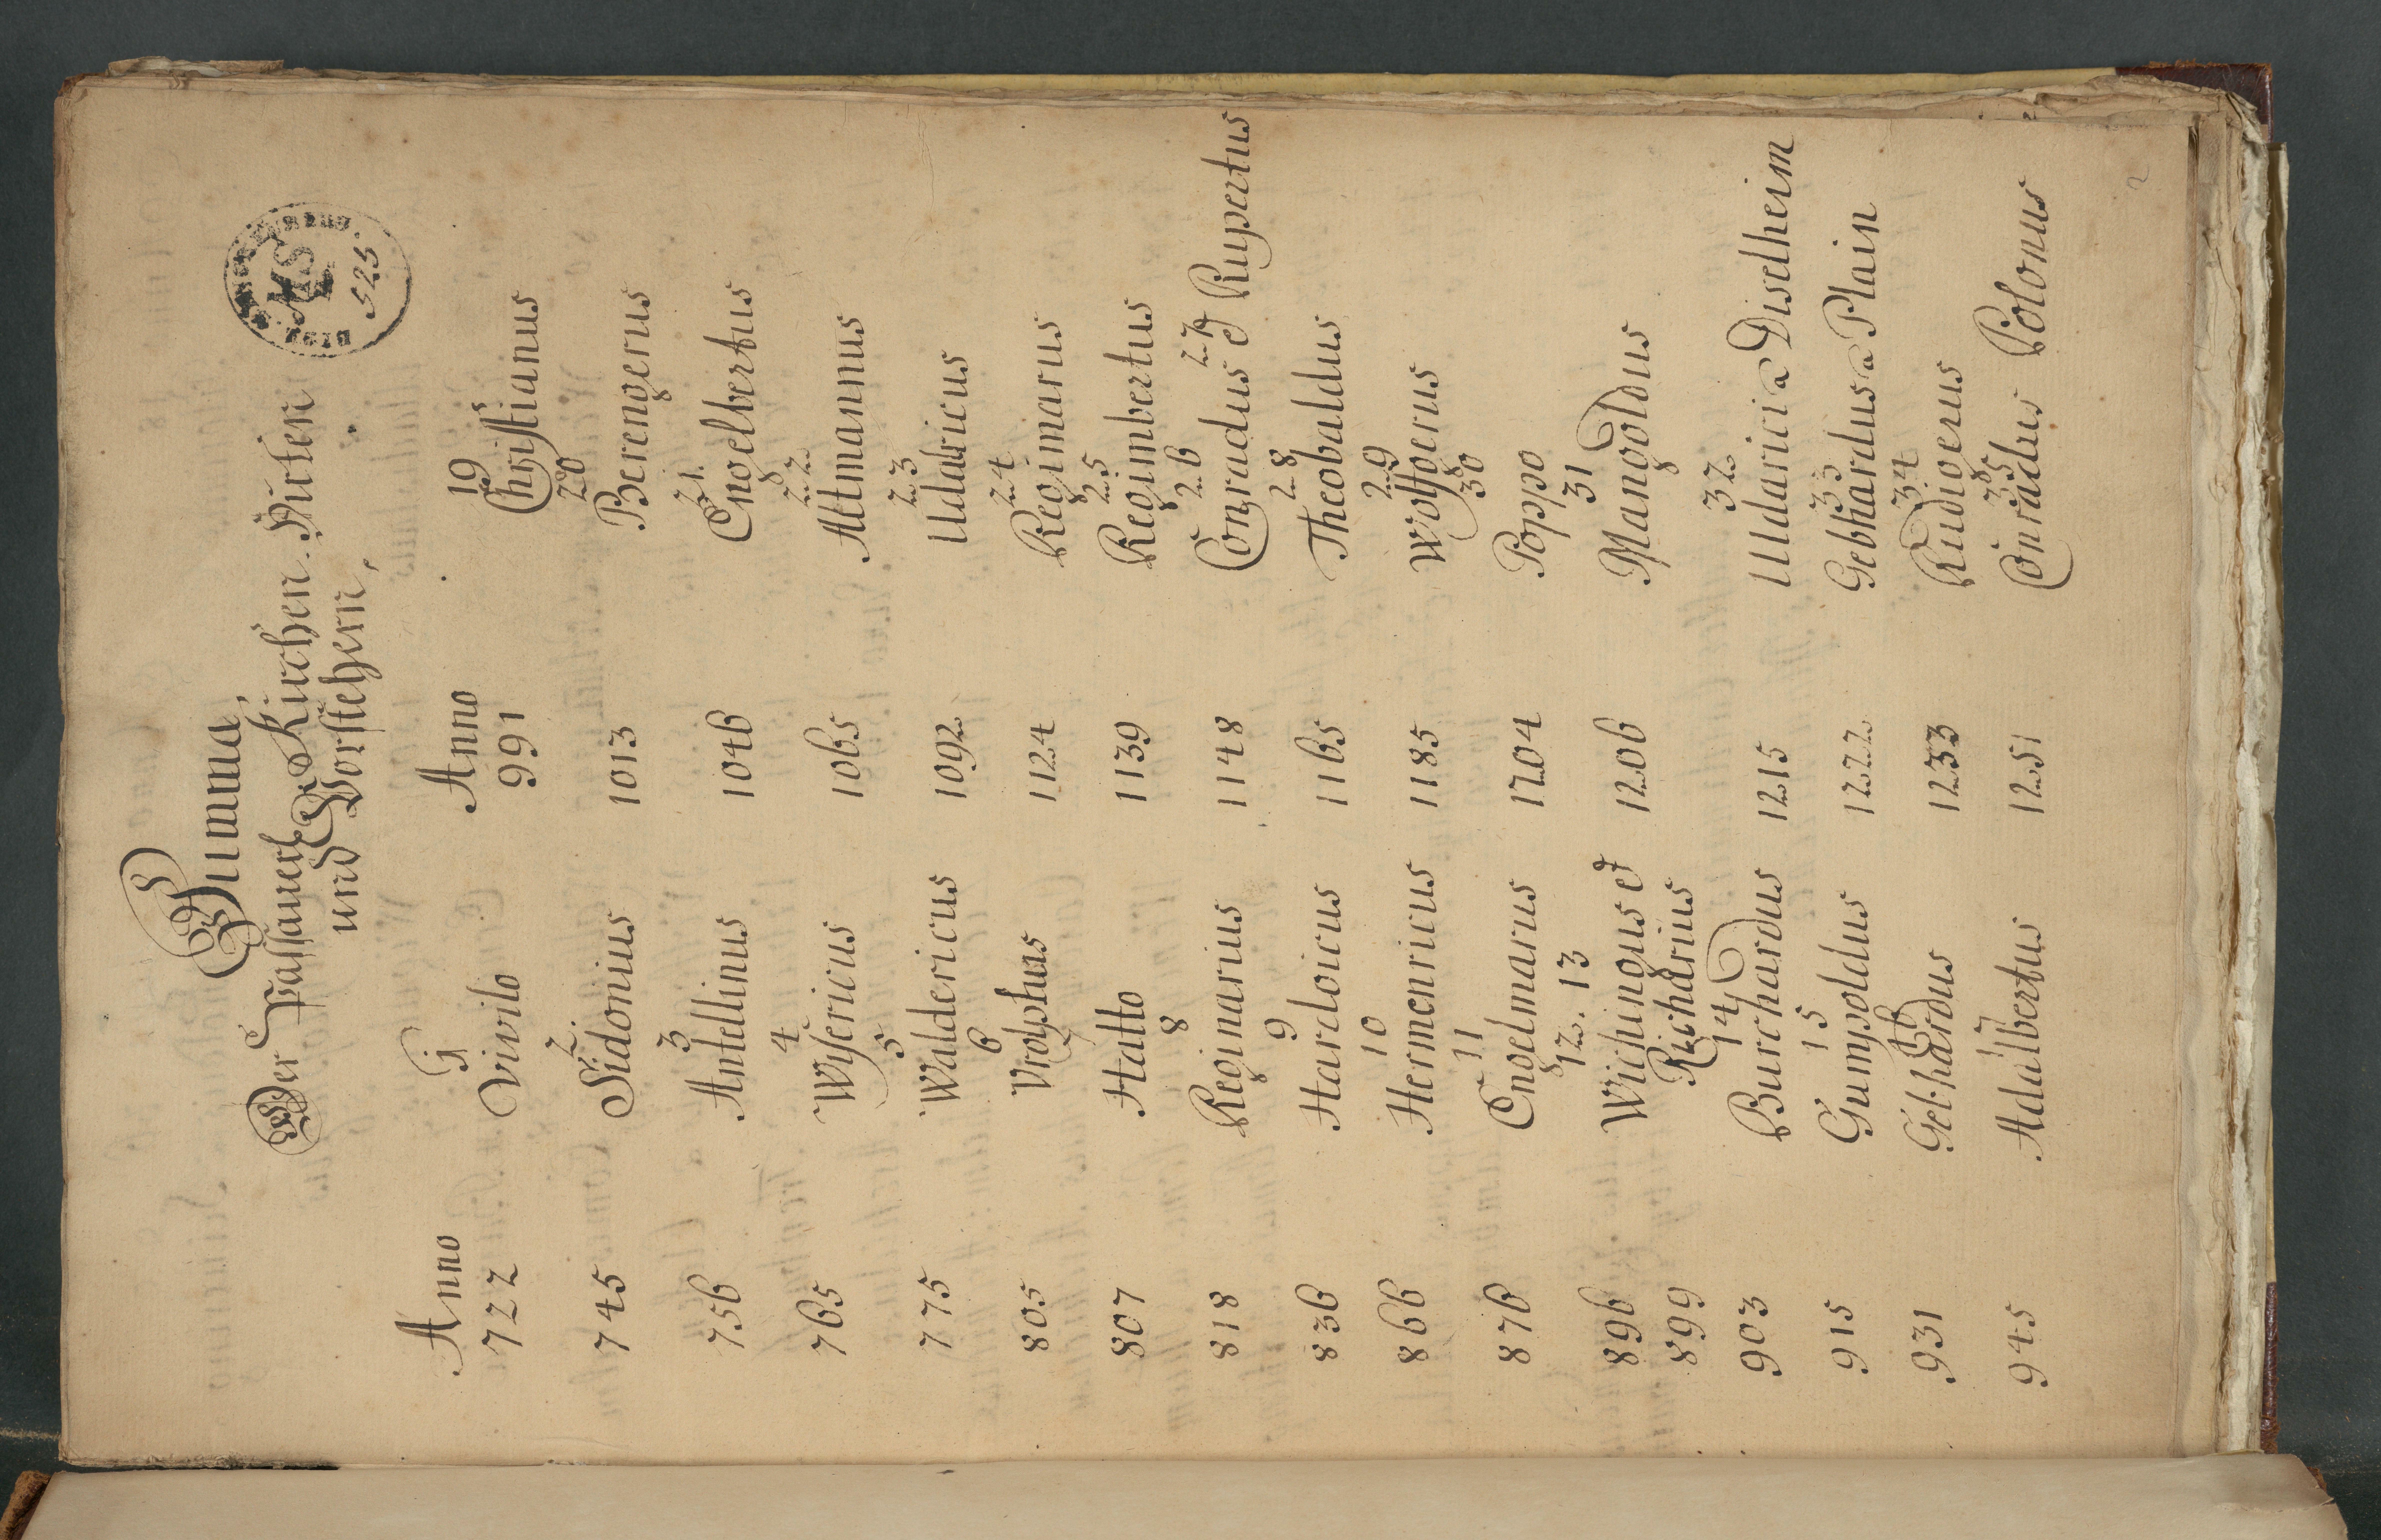 Summa,
Der Passauerl. Kirchen Hirten
und Vorstehern,
MS
525
Anno
1
722 Vivilo
2.
745 Sidonius
3
756 Antellinus
4
765 Wisericus
5
775 Waldericus
6
805 Vrolphus
807 Hatto
8
818 Reginarius
9
836 Hardoicus
10
866 Hermenricus
11
876 Engelmarus
12. 13
896 Wichingus et
899 Richarius
14
903 Burchardus
15
915 Gumpoldus
16
931 Gebhardus
17
945 Adalbertus
Anno
19
991 Christianus
20
1013 Berengerus
21.
1046 Engelbertus
22
1065 Altmannus
23
1092 Udalricus
24
1124 Regimarus
25
1139 Regimbertus
26 27
1148 Conradus et Rupertus
28
1165 Theobaldus
29
1185 Wolfgerus
30
1204 Poppo
31
1206 Mangoldus
32
1215 Uldarici a Diselheim
33
1222 Gebhardus a Plain
34
1233 Rudigerus
35
1251 Conradus Polonus
2